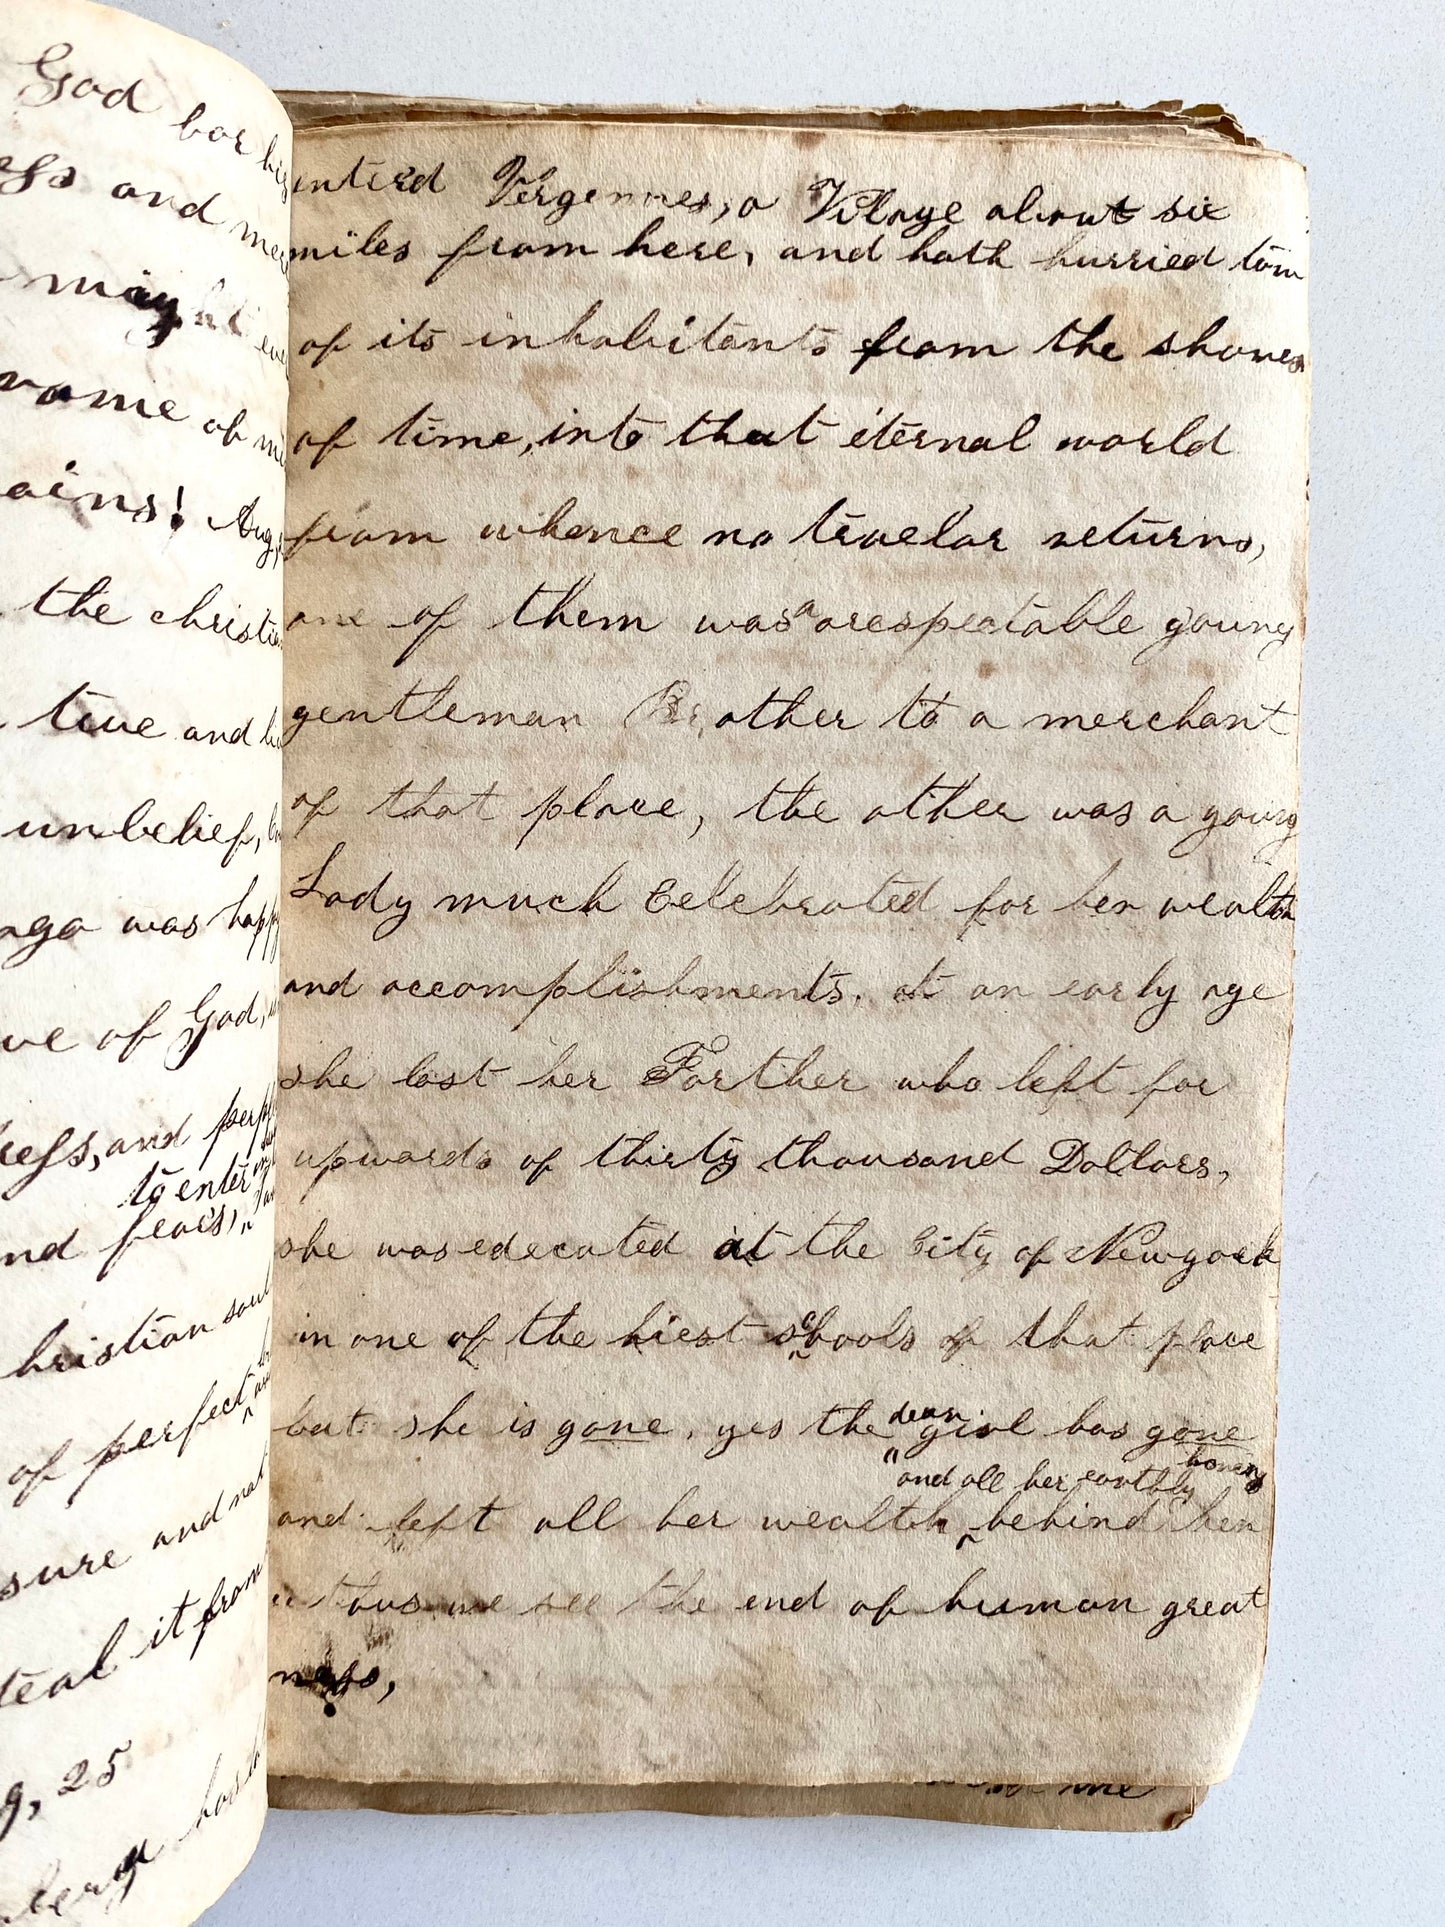 God for his
ess and mer
might
rame of mi
ains! Aug,
the christian
true and
unbelief,
was happy
ve of God,
ness, and
to enter
nd fears,
hristian soul
of perfect
sure and not
teal it from
g, 25
enterd Vergennes, a Vilage about six
miles from here, and hath hurried tow
of its inhabitants from the shores
of time, into that eternal world
from whence no travelor returns,
one of them was a arespectable young
gentleman Brother to a merchant
of that place, the other was a young
Lady much Celebrated for her wealth
and accomplishments. at an early age
she lost her Farther who left for
upwards of thirty thousand Dollars,
she was edecated at the City of Newyork
in one of the hiest schools of that place
but she is gone, yes the dear girl has gone
and all her earthly honers
and left all her wealth behind her
thus we see the end of human great
ness,
me